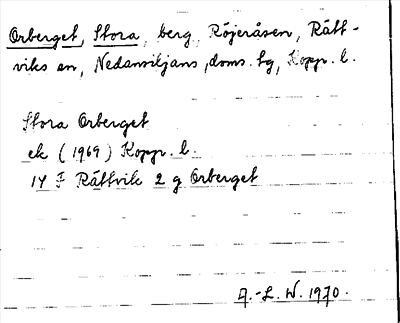 Orberget, Stora, berg, Röjeråsen, Rätt-
viks sn, Nedansiljans, doms. tg, Kopp. l.
Stora Orberget
ek (1969) Kopp. l.
14 F Rättvik 2 g Orberget
A.-L. W. 1970.